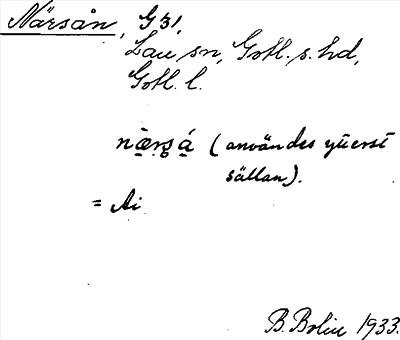 Närsån, G 31,
Lau sn, Gotl. s. hd,
Gotl. l.
nærgá (användes ytterst
sällan).
= Ai
B. Bolin 1933.